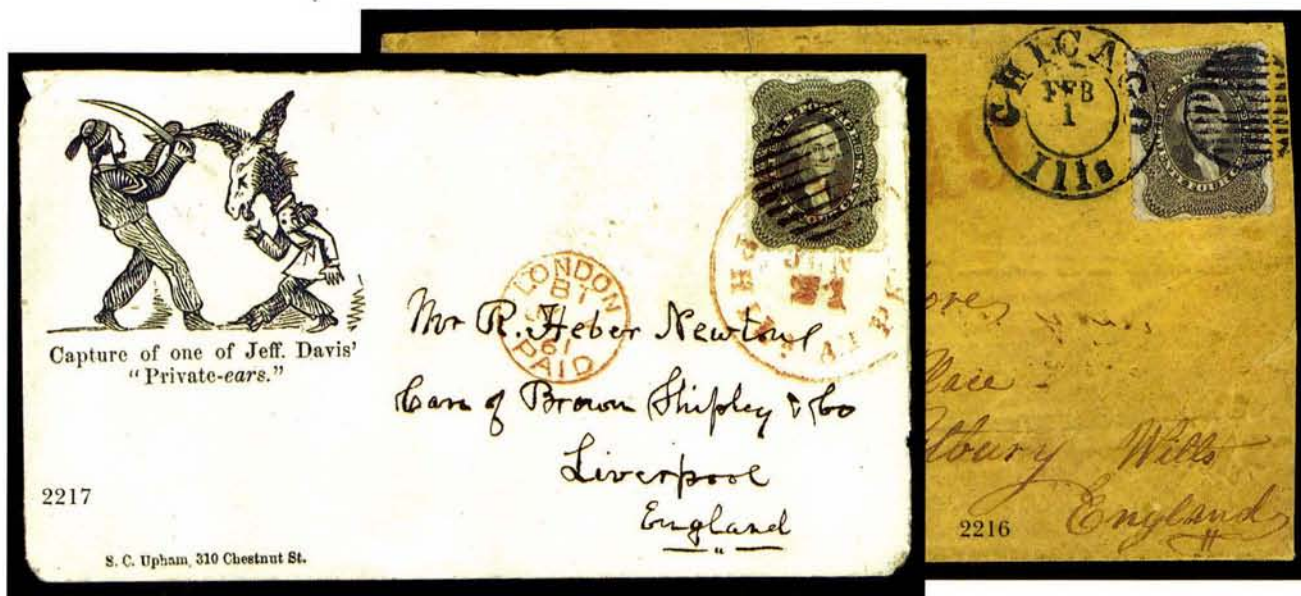 Capture of one of Jeff. Davis'
"Private-ears."
2217
S. C. Upham, 310 Chestnut St.
LONDON
61
PAID
Mr R. Heber Newton
Care of Brown Shipley & Co
Liverpool
England
21
CHICAGO
FEB
1
Ills
Place
Wilts
England
2216